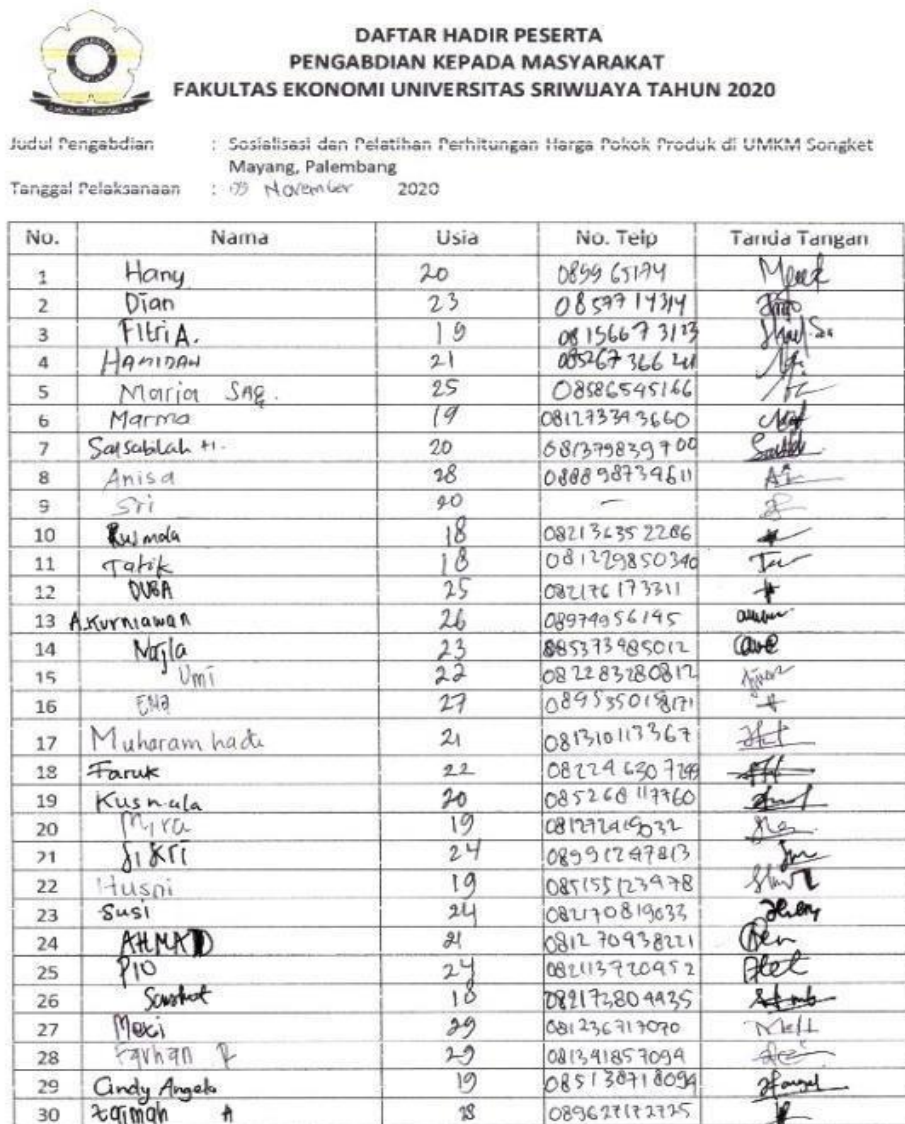 DAFTAR HADIR PESERTA
PENGABDIAN KEPADA MASYARAKAT
FAKULTAS EKONOMI UNIVERSITAS SRIWIJAYA TAHUN 2020
Judul Pengabdian : Sosialisasi dan Pelatihan Perhitungan Harga Pokok Produk di UMKM Songket
Mayang, Palembang
Tanggal Pelaksanaan : 09 November 2020
No. Nama Usia No. Telp Tanda Tangan
1 Hany 20 0899 65174
2 Dian 23
3 Fitri A. 19 08156673123
4 HAMIDAH 21
5 Maria 25 08586545166
6 Marma 19 081273343660
7 Salsabilah H. 20 081379839700
8 Anisa 28 088898734611
9 Sri 20 -
10 Kusmala 18 082136352286
11 Tatik 18 081229850340
12 25 082176173311
13 A.Kurniawan 26 08974956145
14 Najla 23 085373985012
15 Umi 22 082283280812
16 27
17 Muharam hadi 21 081310113367
18 Faruk 22 082246307299
19 Kusmala 20 085268117760
20 Mira 19
21 Fikri 24 08991247813
22 Husni 19 085155123978
23 Susi 24 082170819033
24 AHMAD 21 081270938221
25 PIO 24 082113720952
26 18 082173804435
27 Mexi 29 081236717070
28 Farhan R 29 081341857094
29 Cindy Angela 19 085138718094
30 A 28 089627172725